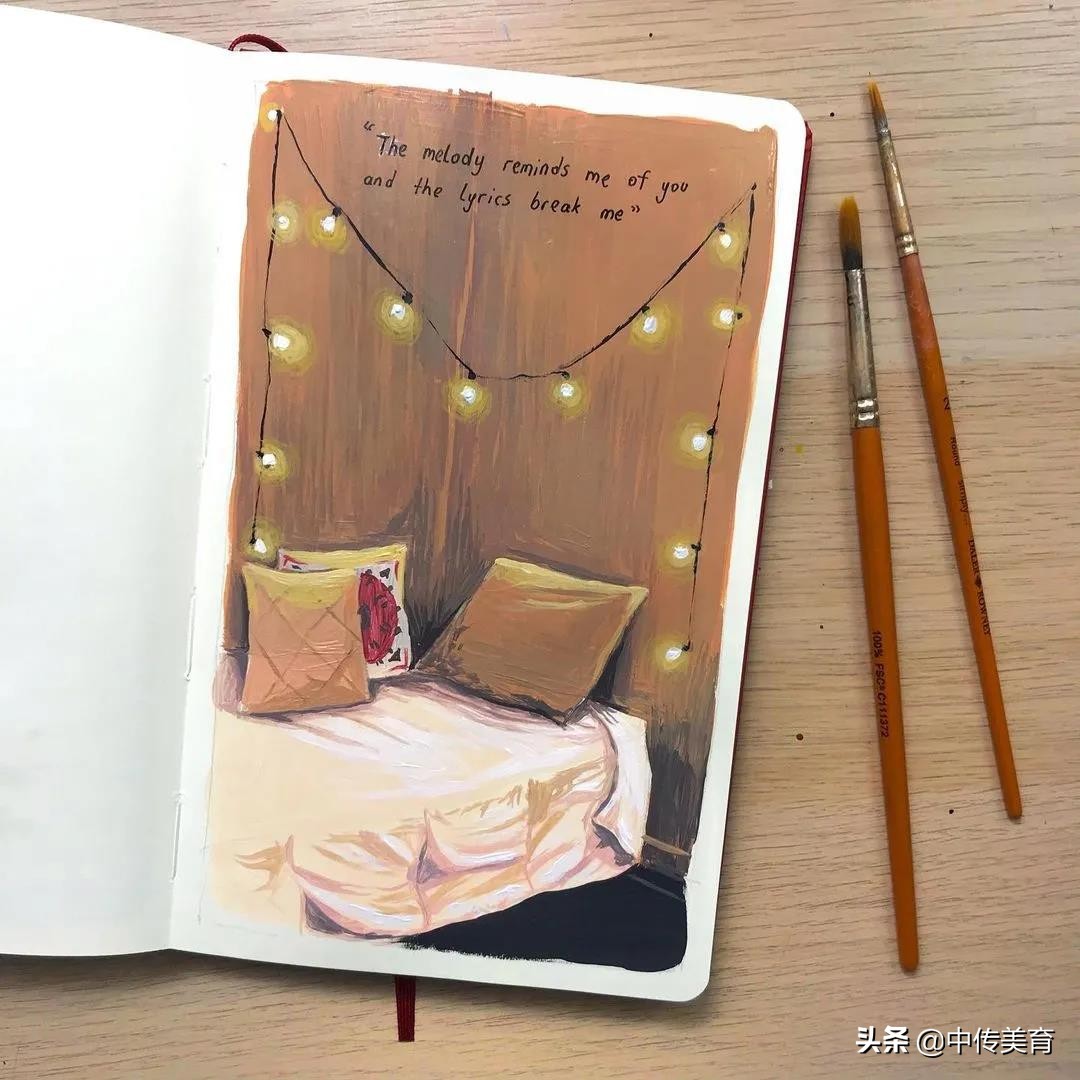 “The melody reminds me of you
and the lyrics break me”
2
ROUND
simply...
DALER ROWNEY
100% FSC® C111372
头条 @中传美育